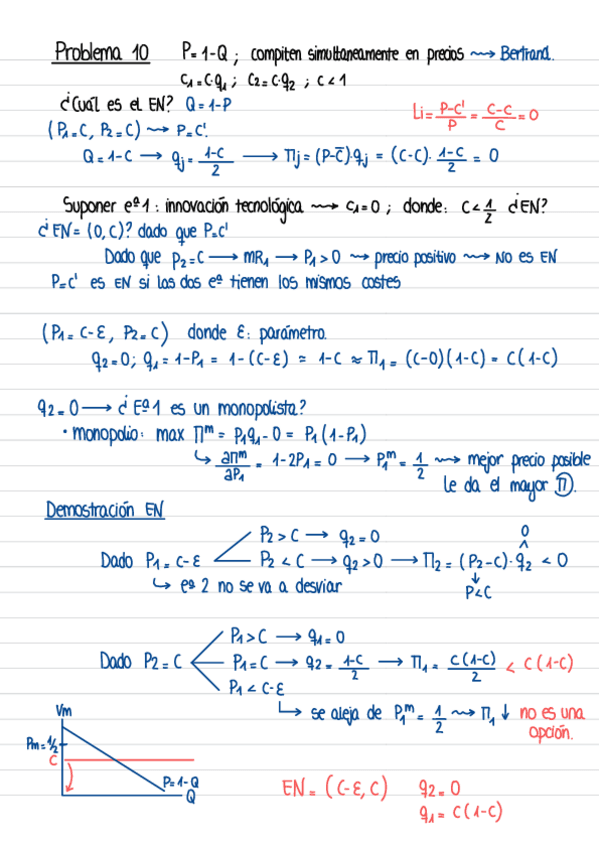 Problema 10 P=1-Q ; compiten simultaneamente en precios ⟿ Bertrand.
C₁=C·q₁ ; C₂=C·q₂ ; C<1
¿Cuál es el EN? Q=1-P
Li = (P-C')/P = (C-C)/C = 0
(P₁=C, P₂=C) ⟿ P=C'.
Q=1-C → qj = (1-C)/2 → Πj = (P-C̄)·qj = (C-C)·(1-C)/2 = 0
Suponer eª1: innovación tecnológica ⟿ C₁=0 ; donde: C<1/2 ¿EN?
¿EN=(0,C)? dado que P=C'
Dado que P₂=C → MR₁ → P₁>0 ⟿ precio positivo ⟿ NO es EN
P=C' es EN si las dos eª tienen los mismos costes
(P₁=C-ε, P₂=C) donde ε: parámetro.
q₂=0; q₁=1-P₁ = 1-(C-ε) ≃ 1-C ≈ Π₁=(C-0)(1-C) = C(1-C)
q₂=0 → ¿Eª1 es un monopolista?
• monopolio: max Πᵐ = P₁q₁-0 = P₁(1-P₁)
↳ ∂Πᵐ/∂P₁ = 1-2P₁=0 → P₁ᵐ = 1/2 ⟿ mejor precio posible
le da el mayor Π.
Demostración EN
Dado P₁=C-ε
P₂>C → q₂=0
P₂<C → q₂>0 → Π₂=(P₂-C)·q₂<0
0
^
↓
P<C
↳ eª 2 no se va a desviar
Dado P₂=C
P₁>C → q₁=0
P₁=C → q₂=(1-C)/2 → Π₁ = C(1-C)/2 < C(1-C)
P₁<C-ε
↳ se aleja de P₁ᵐ = 1/2 ⟿ Π₁↓ no es una
opción.
Vm
Pm=1/2
C
P=1-Q
Q
EN=(C-ε,C) q₂=0
q₁=C(1-C)